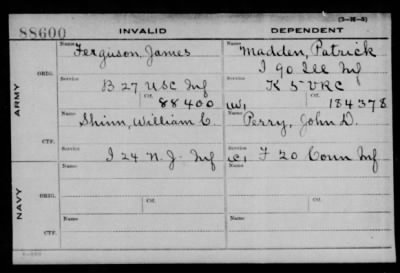 (3-H-3)
88600 INVALID DEPENDENT
ARMY
ORIG.
Name Ferguson, James
Service B 27 USC Inf
Ctf. 88400
Name Madden, Patrick
I 90 Ill Inf
Service K 5 VRC
Ctf. 184378
CTF.
Name Shinn, William C
Service I 24 N.J. Inf
Name Perry, John D.
Service F 20 Conn Inf
NAVY
ORIG.
Name
Service
Ctf.
Name
Service
Ctf.
CTF.
Name
Name